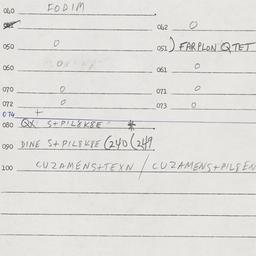 040 IODIM
042 0
050 0
051 ) FARPLON QTET
060 0
061 0
070 0
071 0
072 0
073 0
074 +
080 QX S+PIL8K8E #
090 DINE S+PIL8K8E (240 (249
100 CUZAMENS+TEXN / CUZAMENS+PILSEN